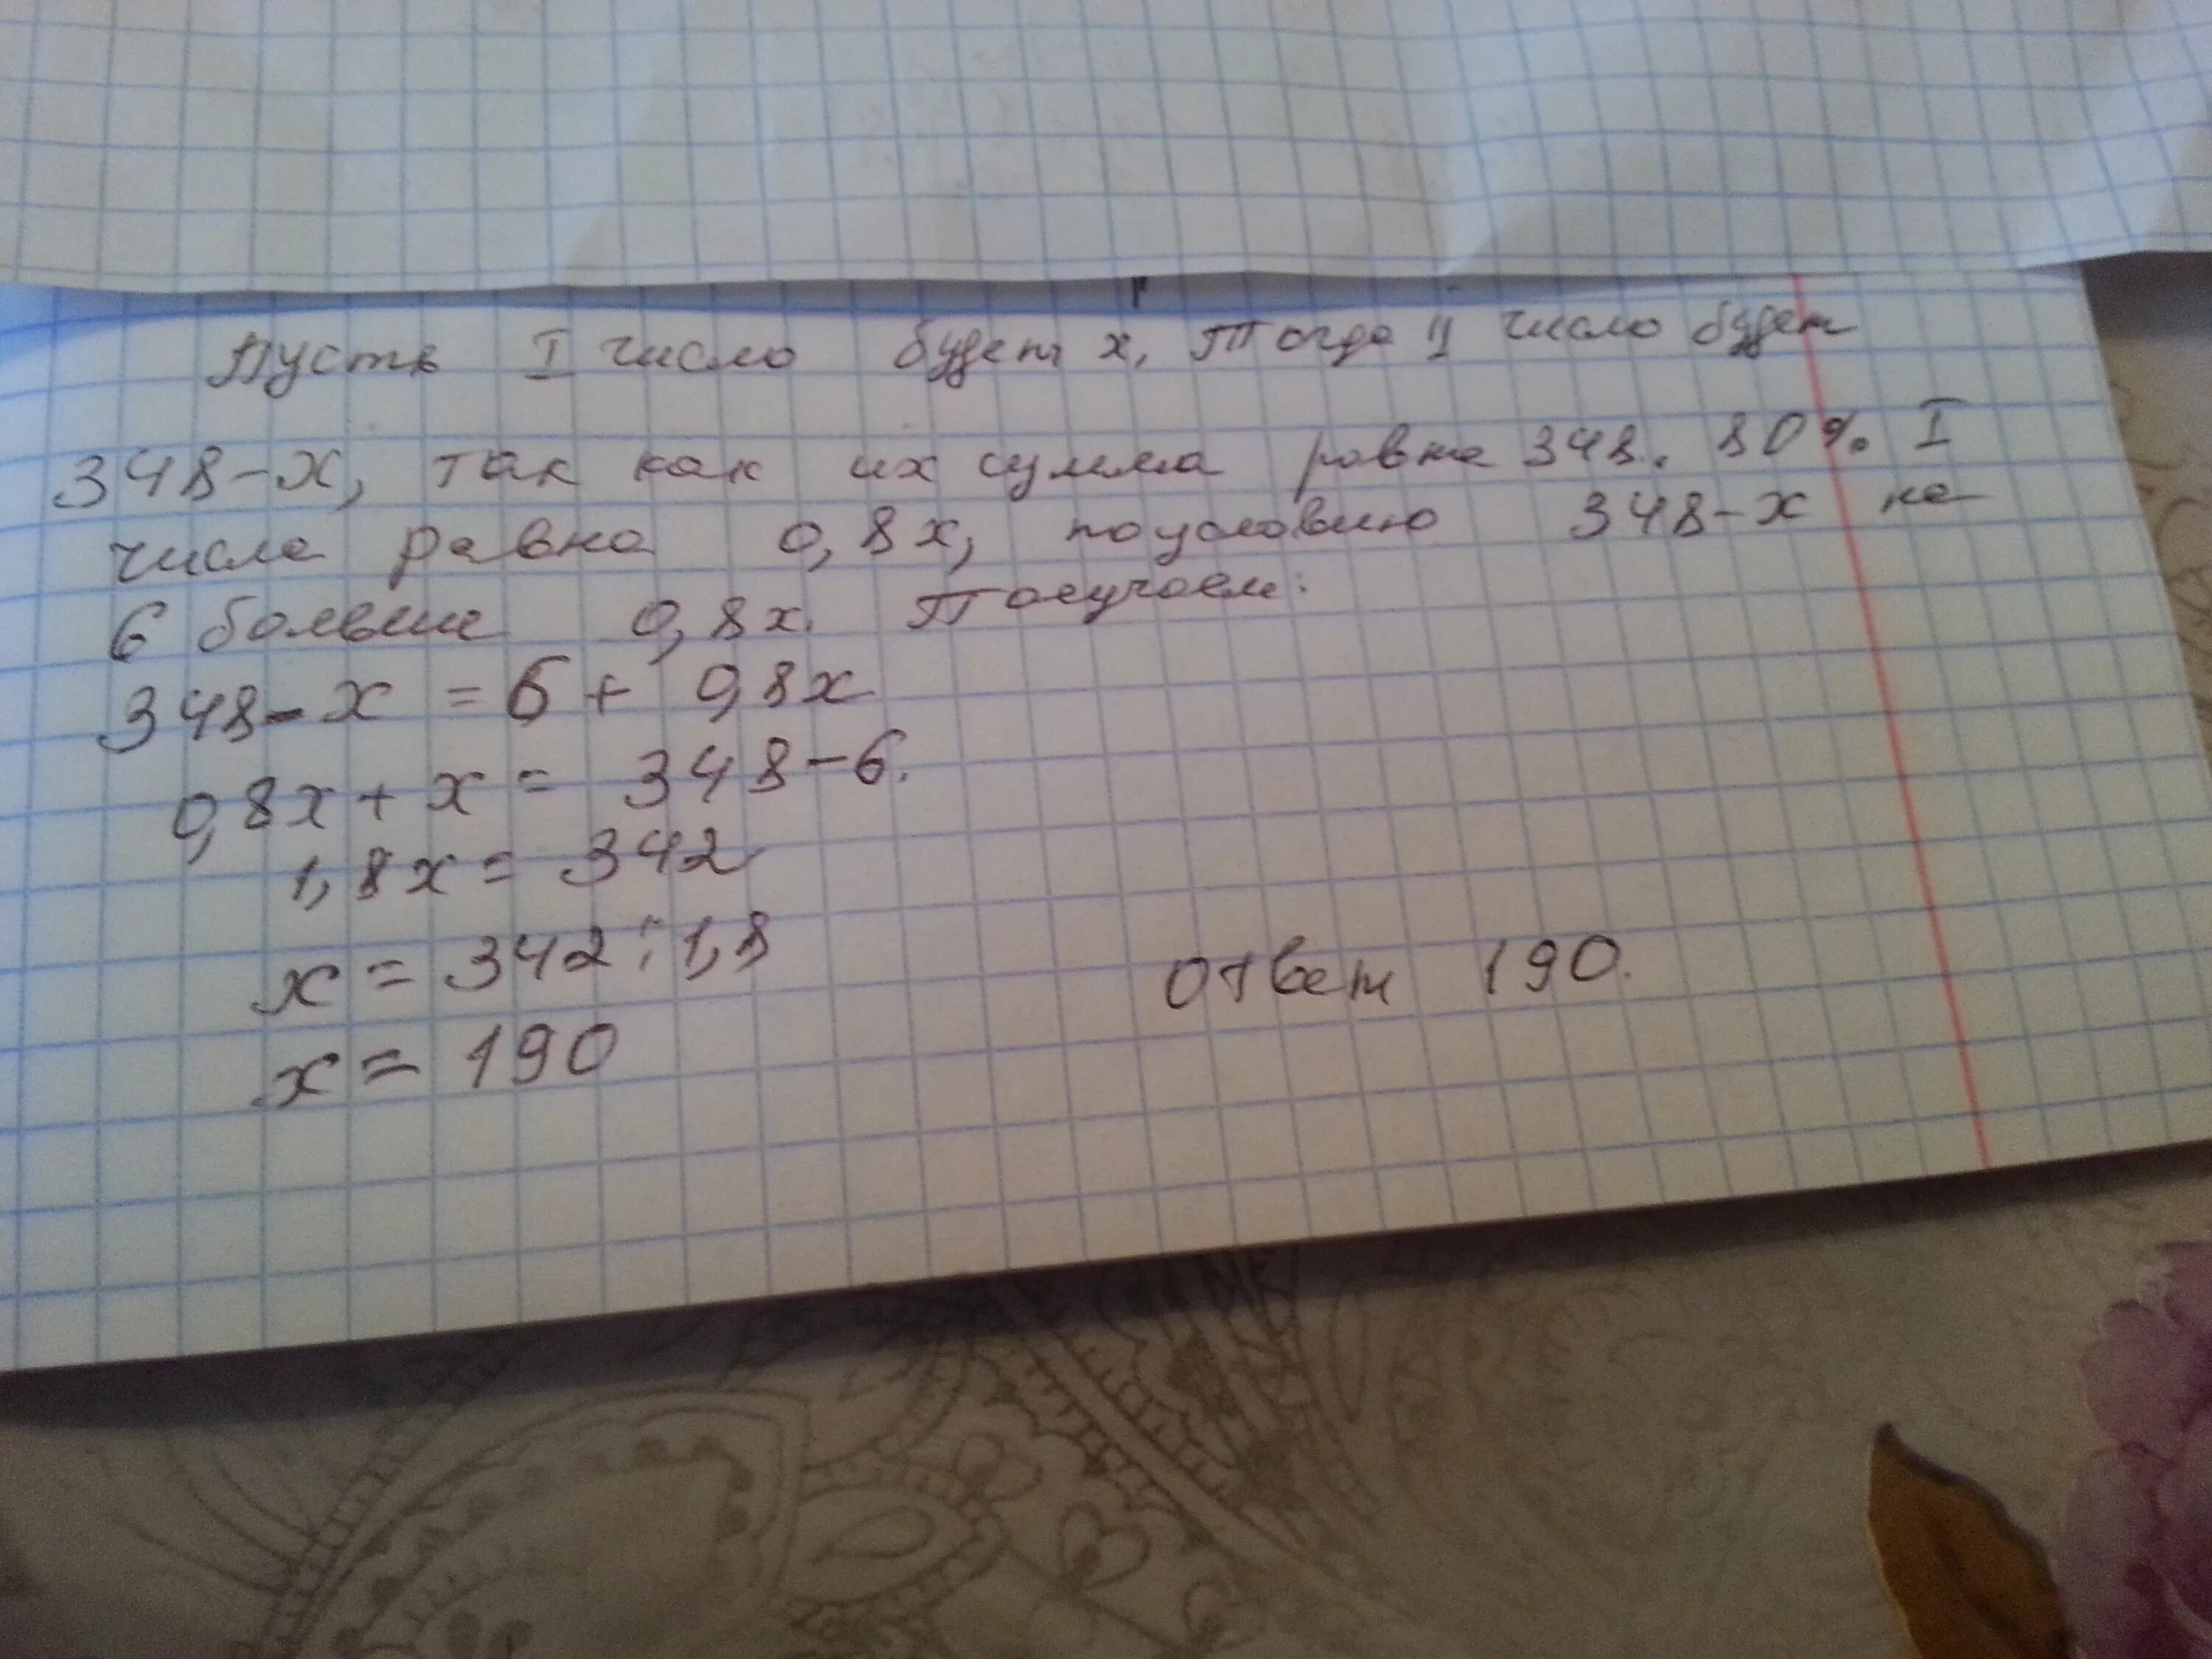 Пусть I число будет х, Тогда II число будет
348-х, так как их сумма равна 348. 80% I
числа равна 0,8х, по условию 348-х на
6 больше 0,8х. Получаем:
348-х = 6 + 0,8х
0,8х + х = 348-6.
1,8х = 342
х = 342 : 1,8
х = 190
Ответ 190.